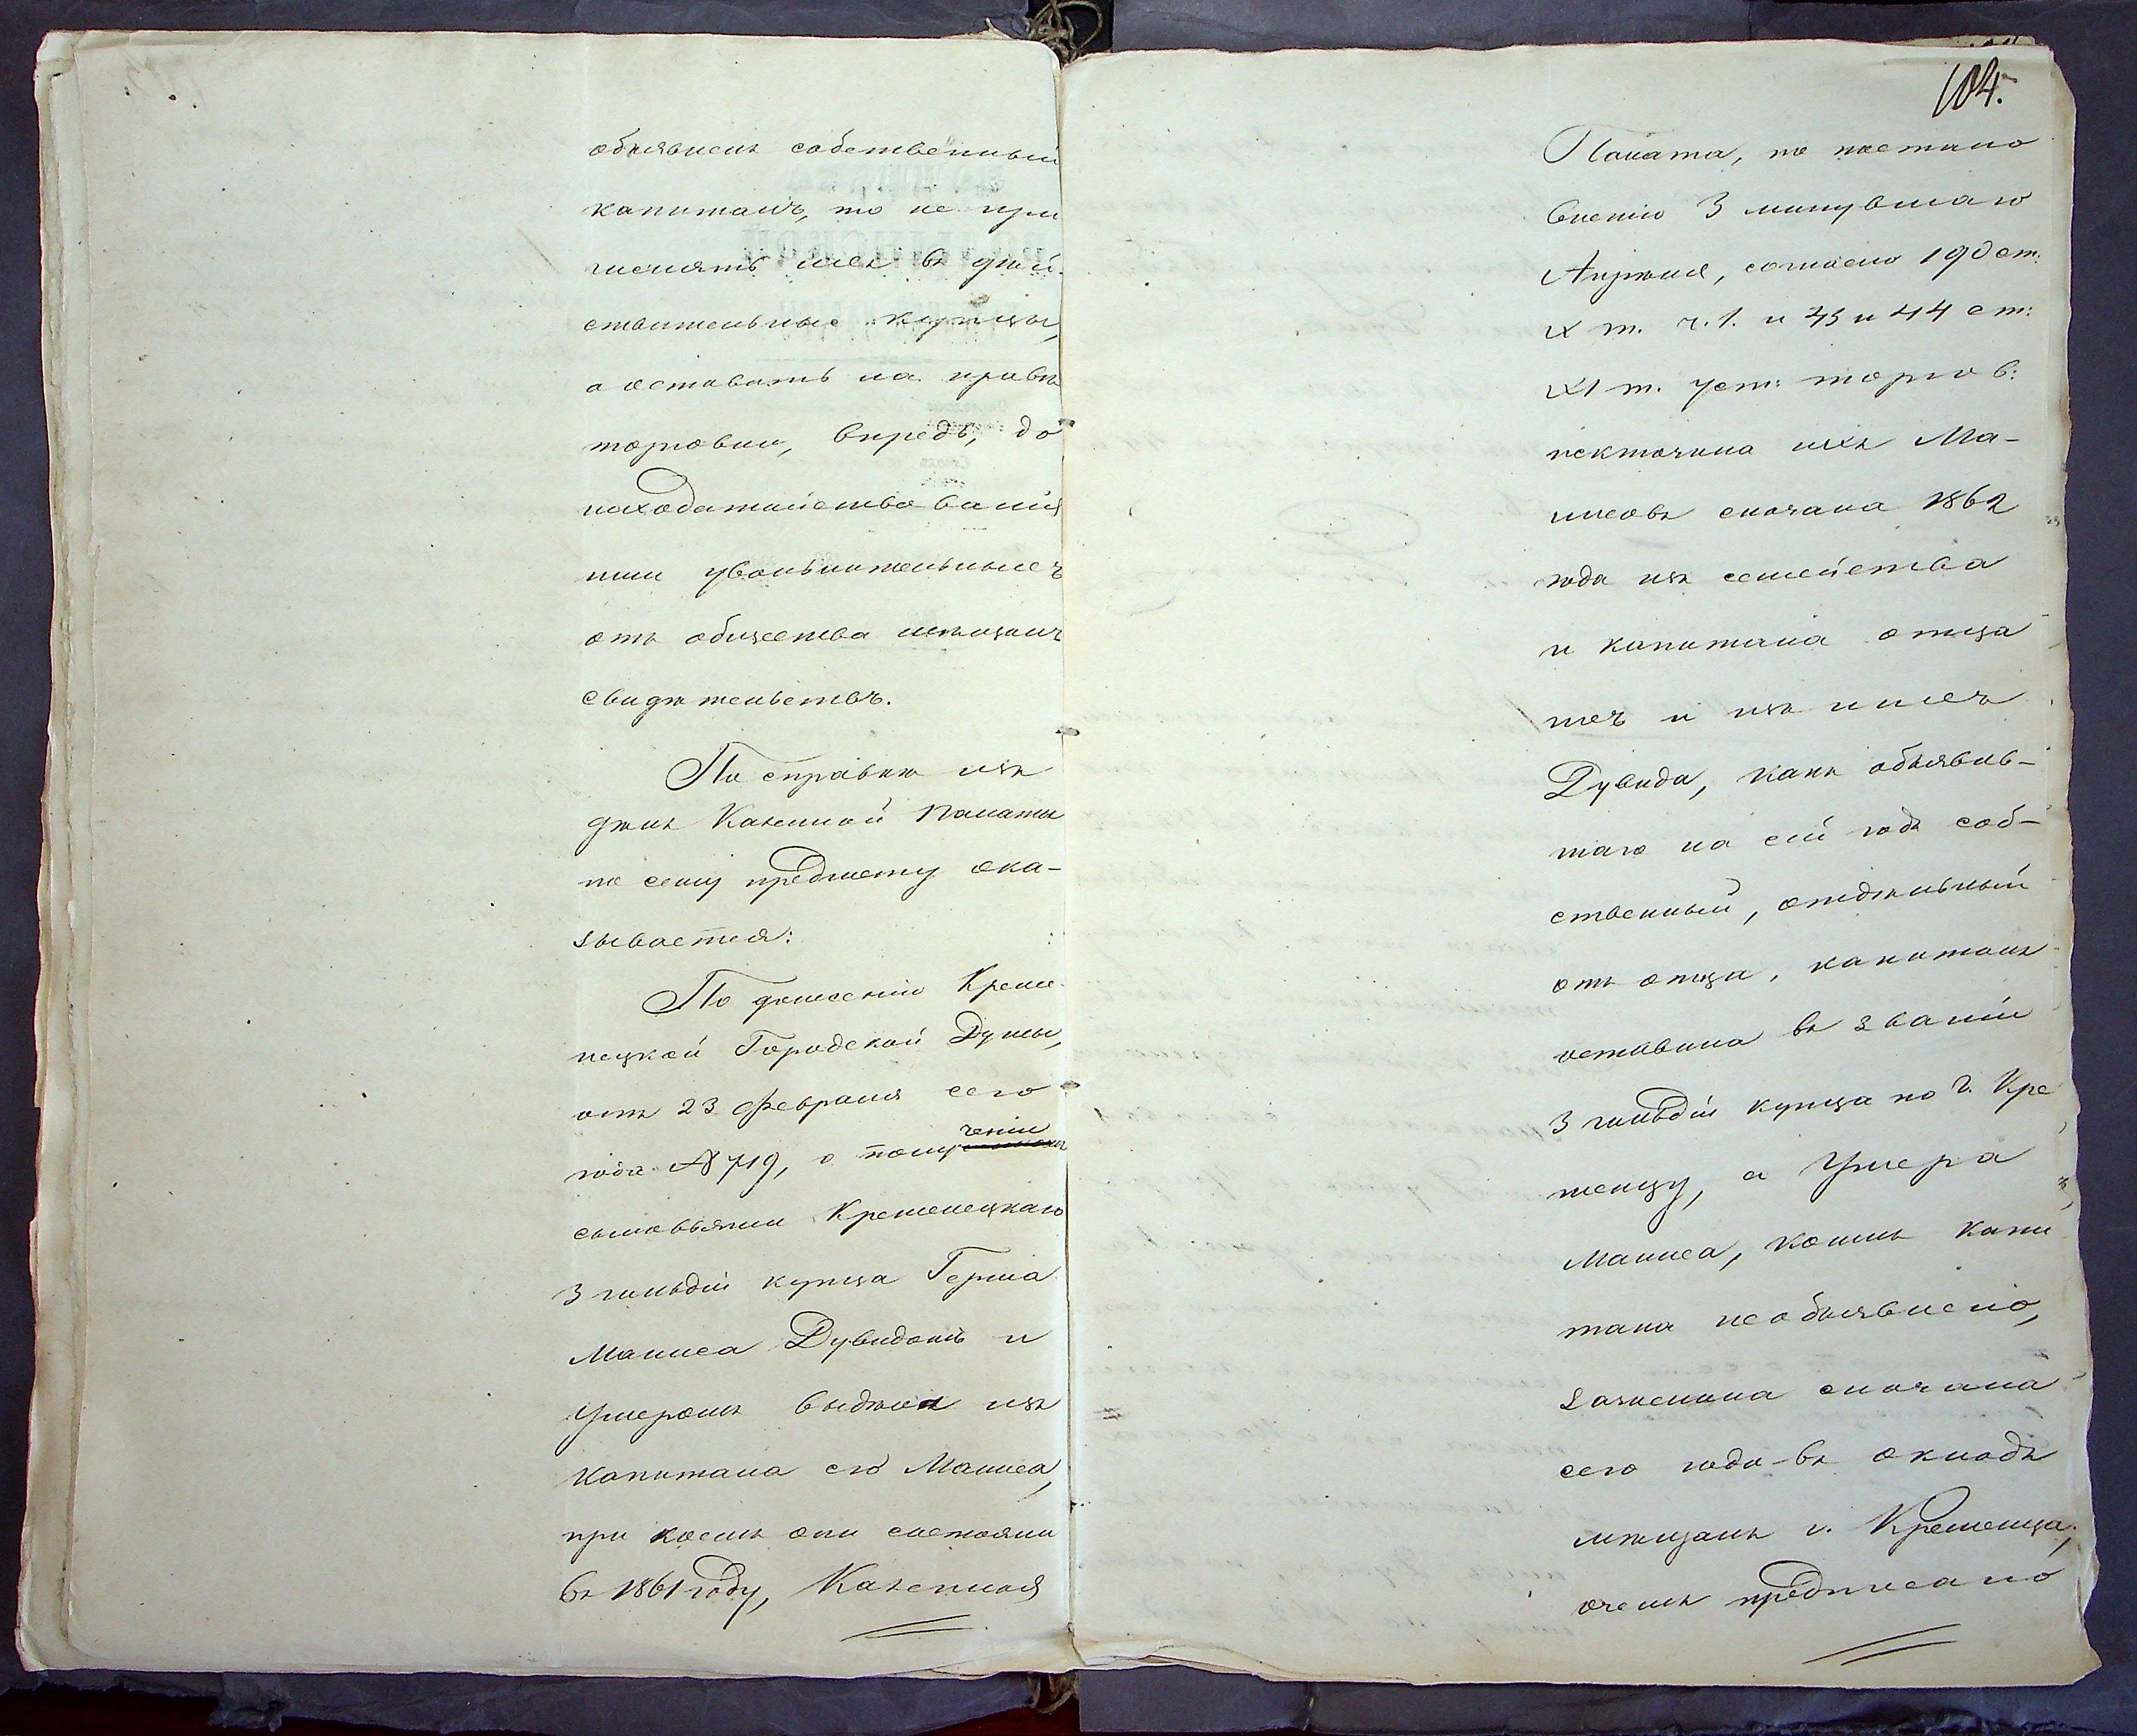 объявленъ собственный
капиталъ, то не при
числять ихъ въ дѣй-
ствительные купцы,
а оставить на правѣ
торговли, впредь, до
находатайствованія
ими увольнительныхъ
отъ общества мѣщанъ
свидѣтельствъ.
По справкѣ изъ
дѣлъ Казенной Палаты
по сему предмету ока-
зывается:
По донесенію Креме
нецкой Городской Думы,
отъ 23 февраля сего
года № 719, о полученіи
сыновьями Кременецкаго
3 гильдіи купца Герша
Маписа Дувидомъ и
Умеромъ выдѣла изъ
капитала его Маписа,
при коемъ они состояли
въ 1861 году, Казенная
104.
Палата, по постано
вленію 3 минувшаго
Апрѣля, согласно 190 ст:
IX т. ч. 1. и 43 и 44 ст:
XI т. Уст: торгов:
исключила ихъ Ма-
писовъ сначала 1862
года изъ семейства
и капитала отца
и изъ нихъ
Дувида, какъ объявив-
шаго на сей годъ соб-
ственный, отдѣльный
отъ отца, капиталъ
оставила въ званіи
3 гильдіи купца по г. Кре
менцу, а Умера
Маписа, коимъ капи
тала необъявлено,
зачислила сначала
сего года въ окладъ
мѣщанъ г. Кременца;
очемъ предписано